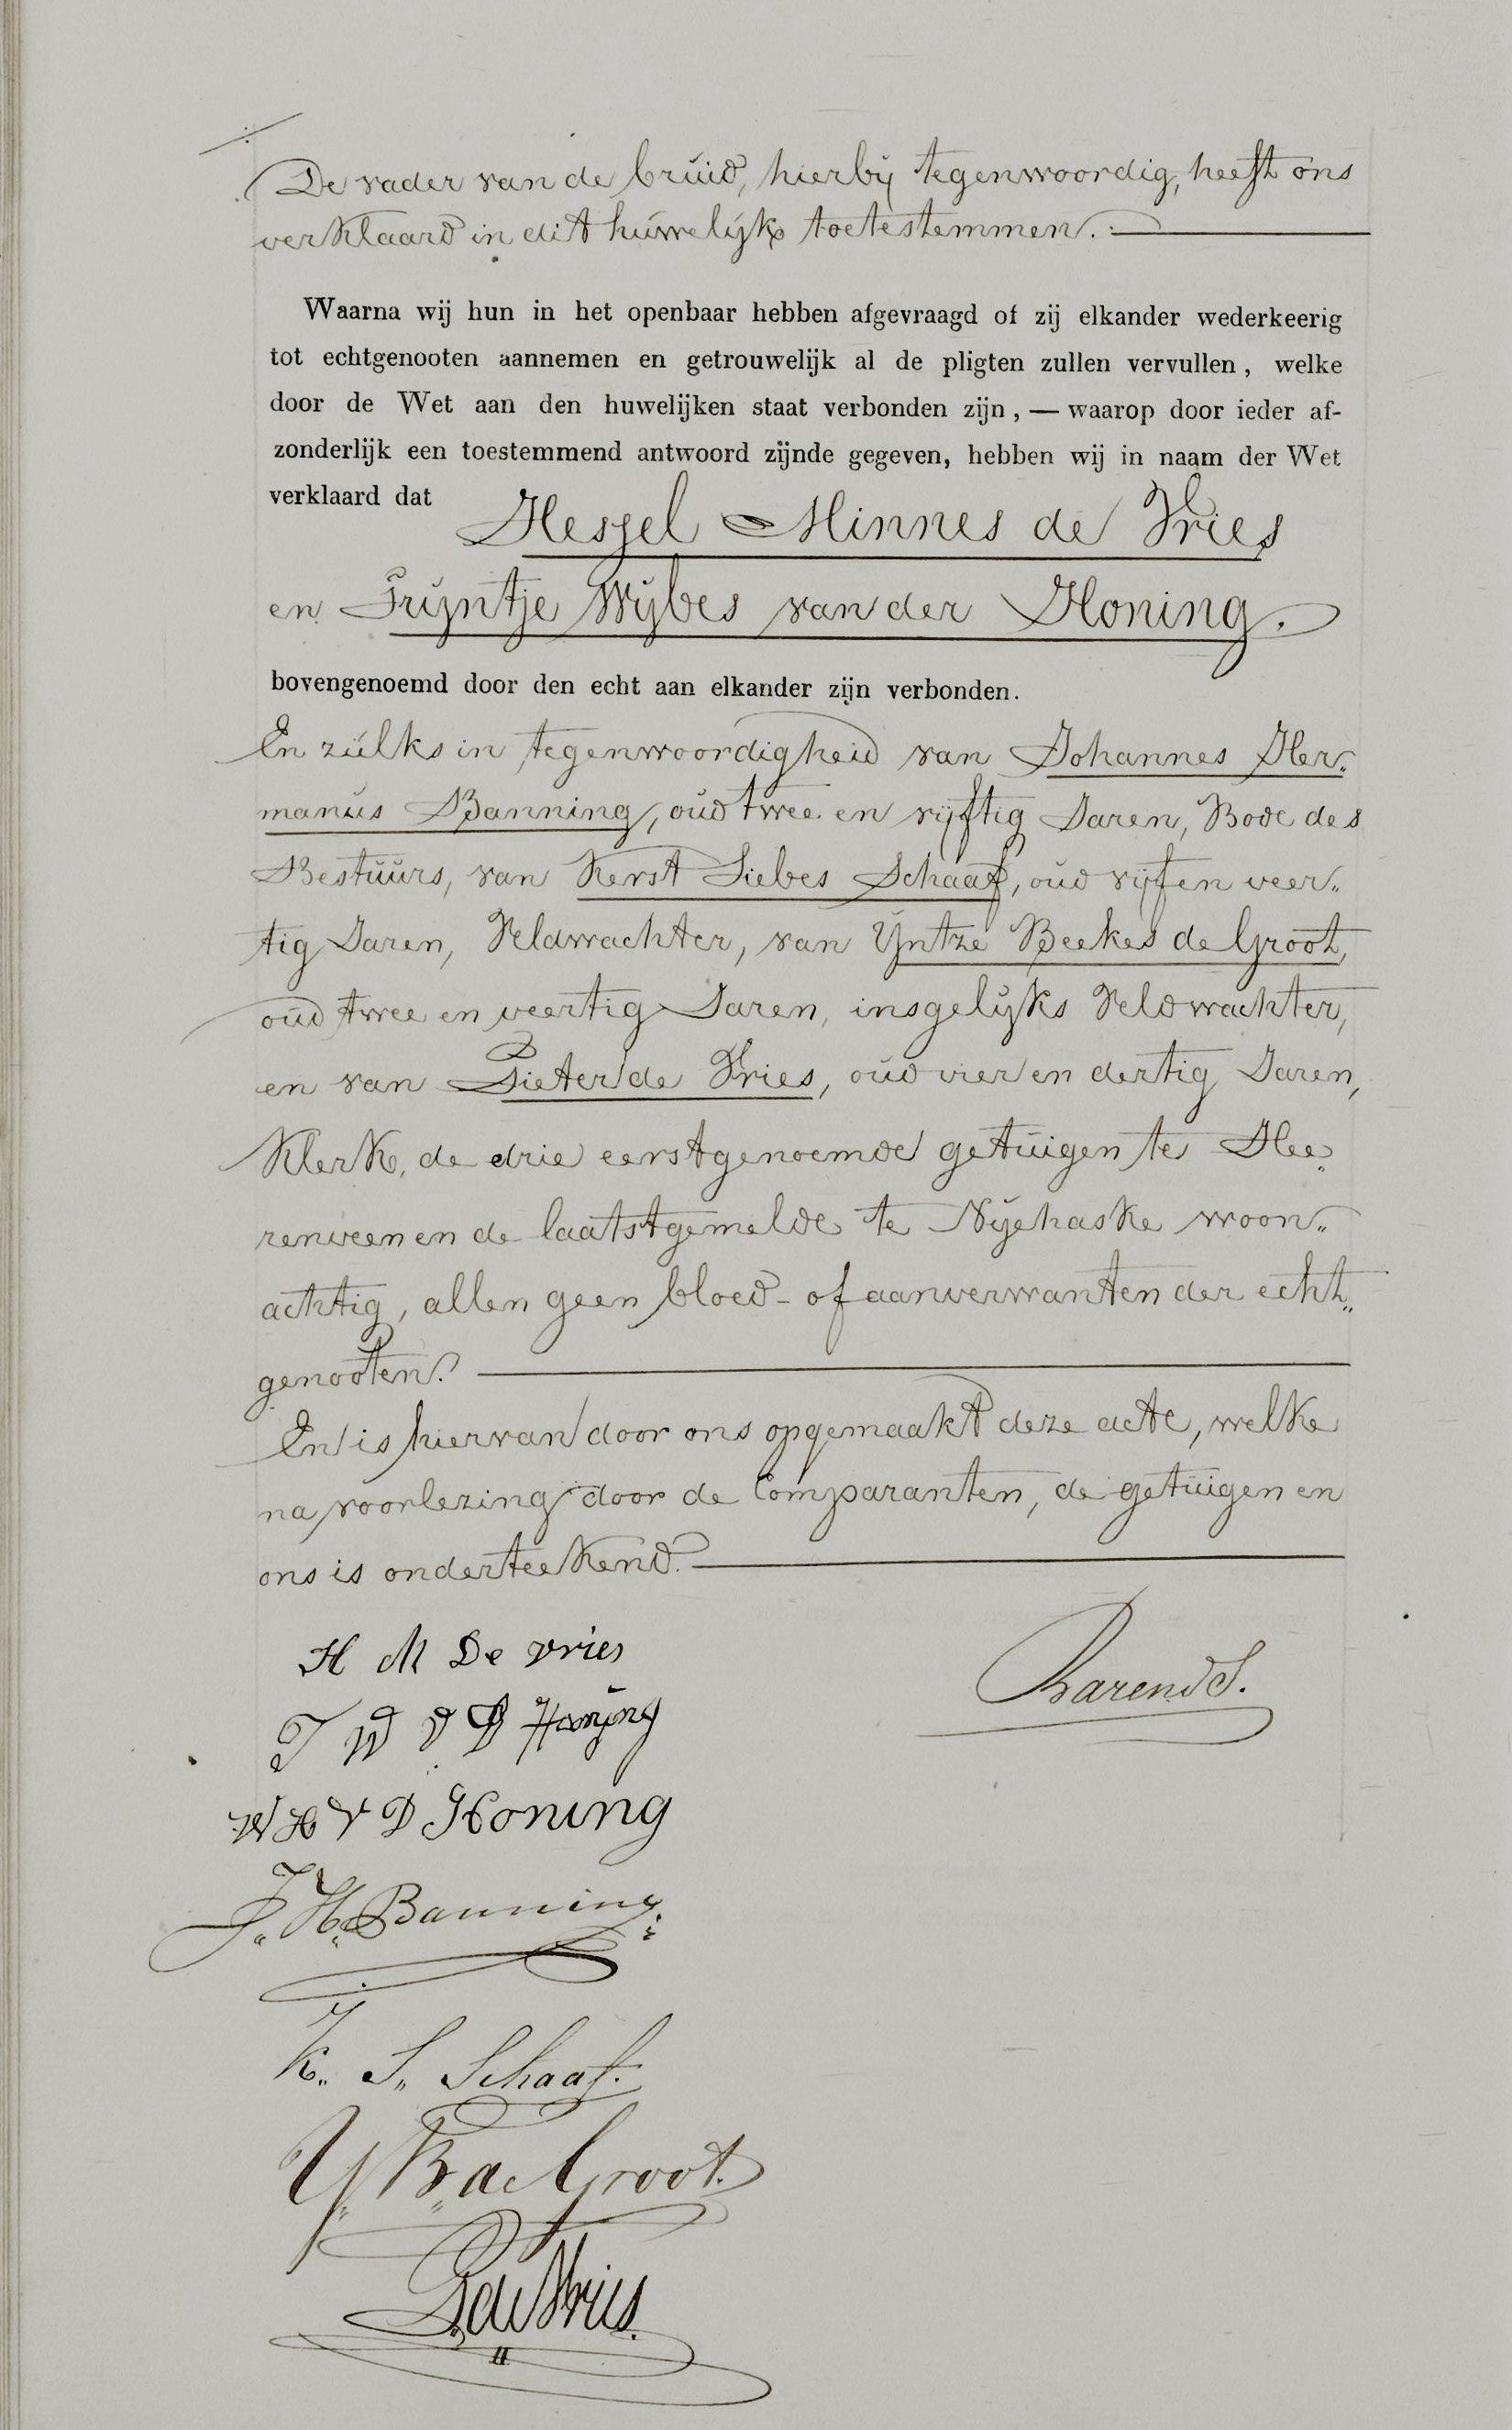 De vader van de bruid, hierbij tegenwoordig, heeft ons
verklaard in dit huwelijk toetestemmen.
Waarna wij hun in het openbaar hebben afgevraagd of zij elkander wederkeerig
tot echtgenooten aannemen en getrouwelijk al de pligten zullen vervullen, welke
door de Wet aan den huwelijken staat verbonden zijn, — waarop door ieder af-
zonderlijk een toestemmend antwoord zijnde gegeven, hebben wij in naam der Wet
verklaard dat Hessel Minnes de Vries
en Trijntje Wijbes van der Honing.
bovengenoemd door den echt aan elkander zijn verbonden.
En zulks in tegenwoordigheid van Johannes Her„
manus Banning, oud twee en vijftig Jaren, Bode des
Bestuurs, van Kerst Siebes Schaaf, oud vijf en veer„
tig Jaren, Veldwachter, van Yntze Beekes de Groot,
oud twee en veertig Jaren, insgelijks Veldwachter,
en van Pieter de Vries, oud vier en dertig Jaren,
Klerk, de drie eerstgenoemde getuigen te Hee„
renveen en de laatstgemelde te Nijehaske woon„
achtig, allen geen bloed- of aanverwanten der echt„
genooten.
En is hiervan door ons opgemaakt deze acte, welke
na voorlezing door de Comparanten, de getuigen en
ons is onderteekend.
H M De vries
Barends.
T W V D Honing
W H V D Honing
J„ H„ Banning
K„ S„ Schaaf.
Y„ B„ de Groot.
P„ de Vries.